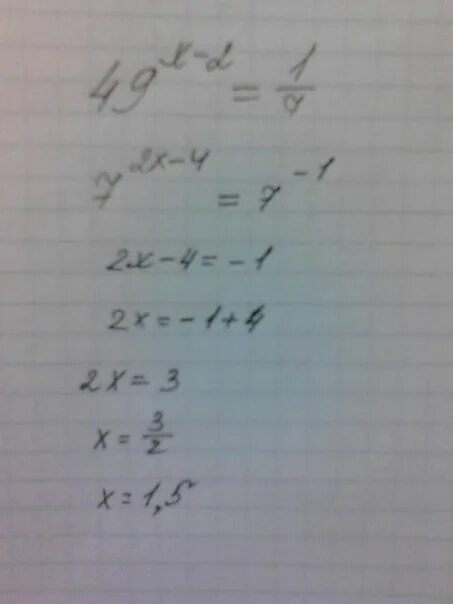 49^{x-2} = \frac{1}{7}
7^{2x-4} = 7^{-1}
2x-4=-1
2x=-1+4
2x=3
x=\frac{3}{2}
x=1,5